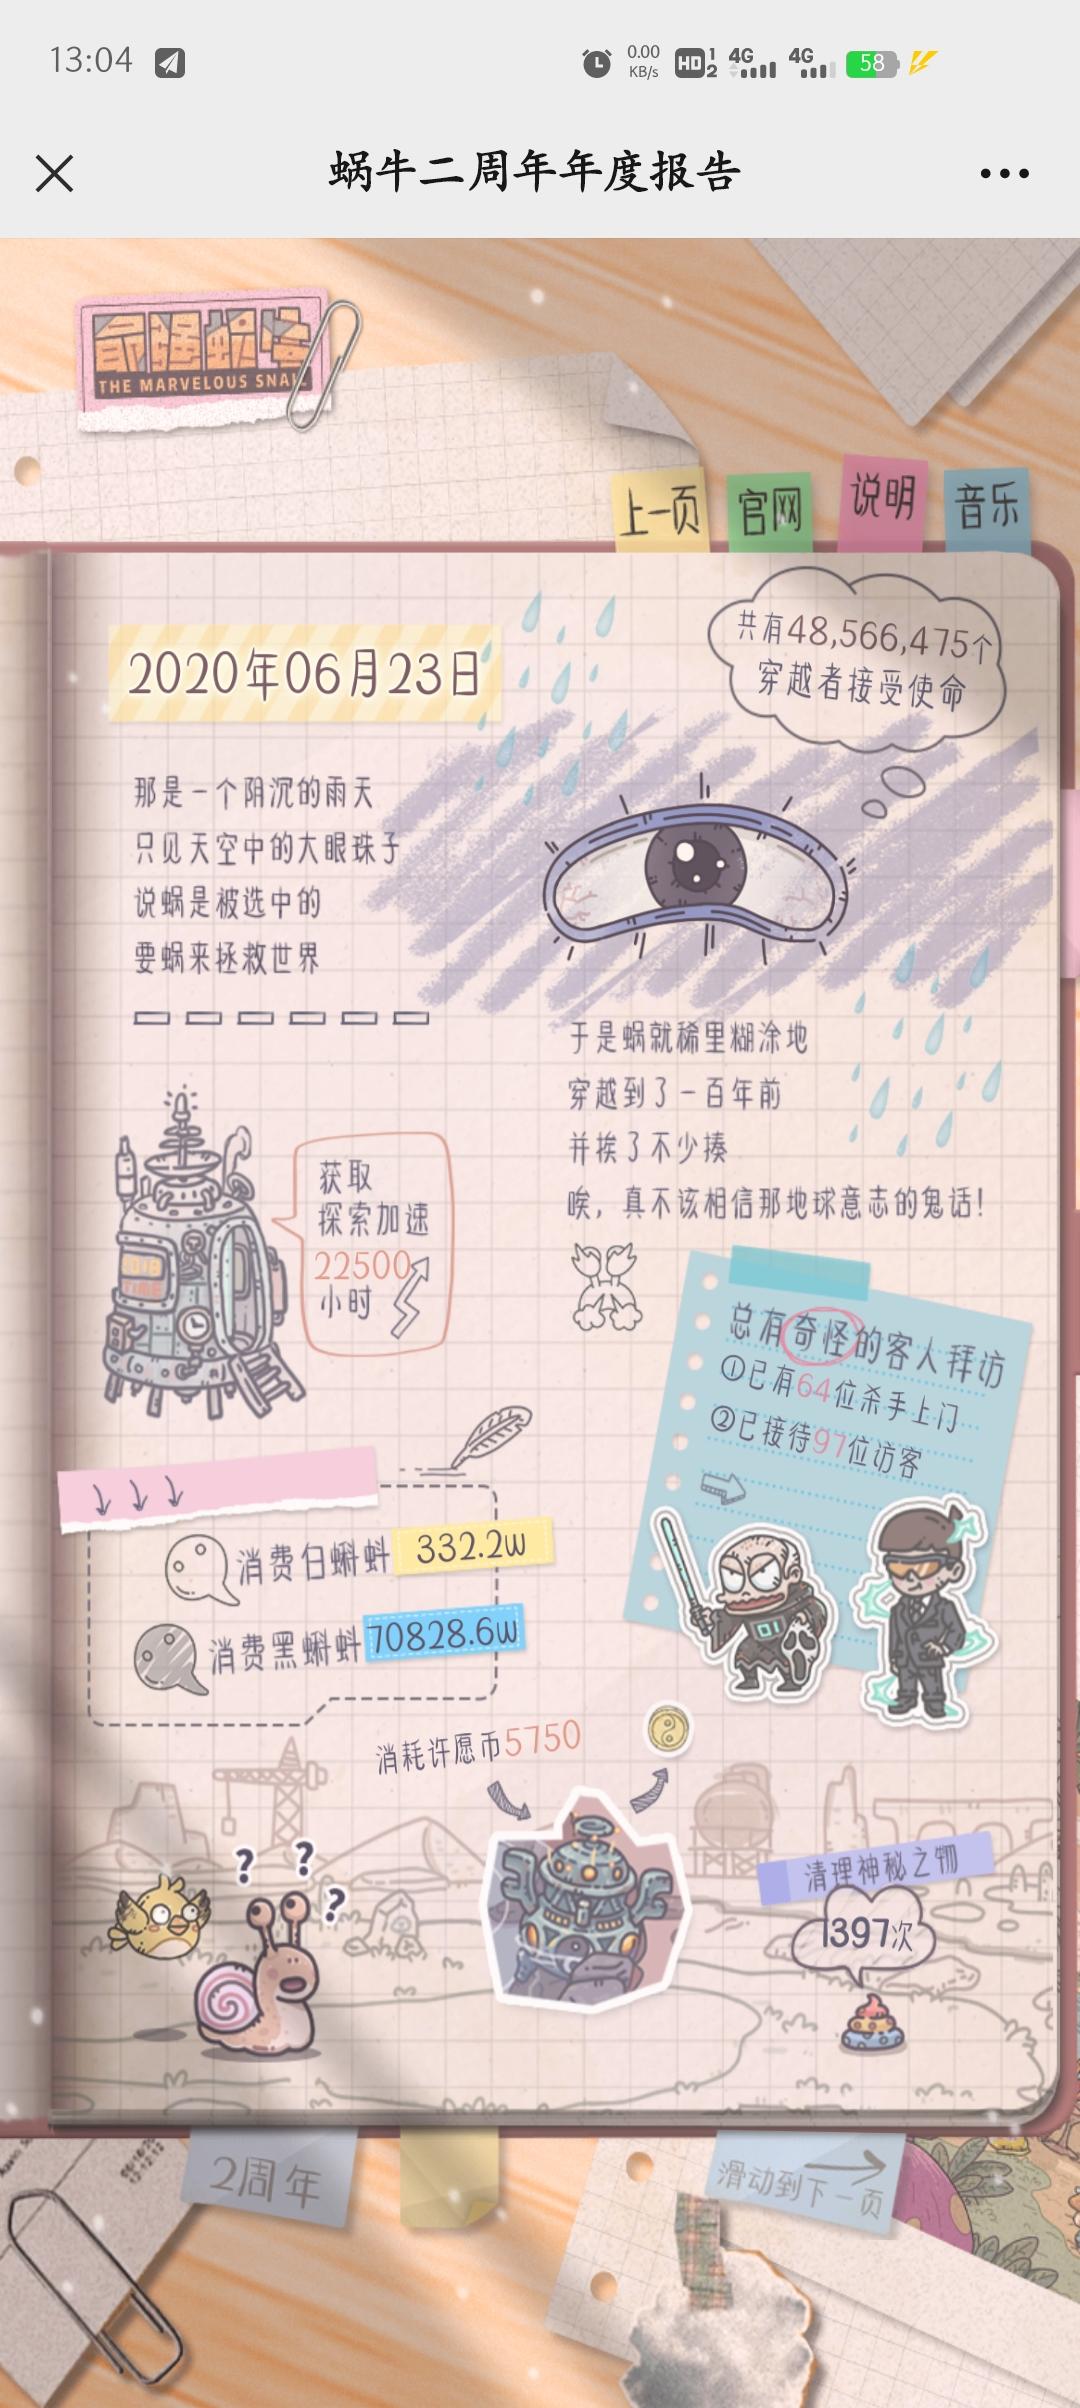 13:04
0.00
KB/s
HD 1 2
4G
4G
58
蜗牛二周年年度报告
最强蜗牛
THE MARVELOUS SNAIL
上一页
官网
说明
音乐
2020年06月23日
共有48,566,475个
穿越者接受使命
那是一个阴沉的雨天
只见天空中的大眼珠子
说蜗是被选中的
要蜗来拯救世界
于是蜗就稀里糊涂地
穿越到了一百年前
并挨了不少揍
唉，真不该相信那地球意志的鬼话！
获取
探索加速
22500
小时
总有奇怪的客人拜访
①已有64位杀手上门
②已接待97位访客
消费白蝌蚪 332.2w
消费黑蝌蚪 70828.6w
消耗许愿币5750
? ? ?
清理神秘之物
1397次
2周年
滑动到下一页